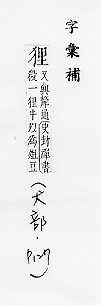 字彙補
狸
又與犛通史封禪書
殺一狸牛以爲俎豆
(犬部·